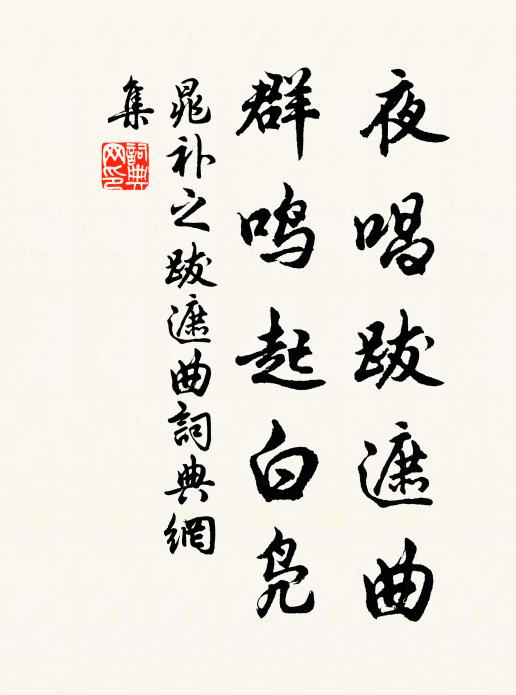 夜唱跋遮曲
群鸣起白凫
晁补之跋遮曲詞典網
集
詞典网印